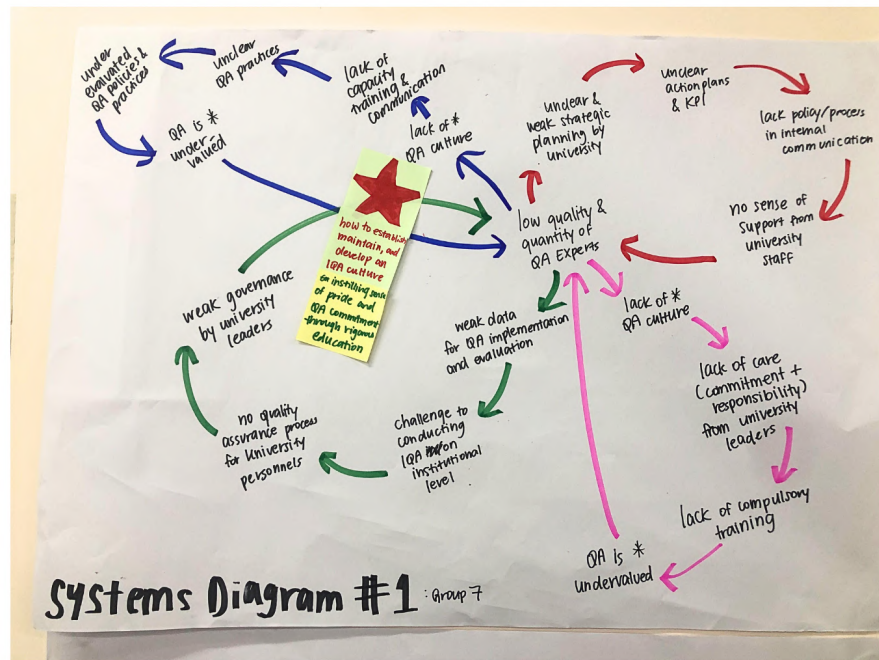 under
evaluated
QA policies &
practices
unclear
QA practices
lack of
capacity
training &
communication
lack of *
QA culture
QA is *
under-
valued
unclear &
weak strategic
planning by
university
unclear
action plans
& KPI
lack policy/process
in internal
communication
no sense of
support from
university
staff
low quality &
quantity of
QA Experts
how to establish,
maintain, and
develop an
IQA culture
on instilling sense
of pride and
QA commitment
through rigorous
education
weak governance
by university
leaders
weak data
for QA implementation
and evaluation
lack of *
QA culture
lack of care
(commitment +
responsibility)
from university
leaders
no quality
assurance process
for University
personnels
challenge to
conducting
IQA on
institutional
level
lack of compulsory
training
QA is *
undervalued
Systems Diagram #1 : Group 7